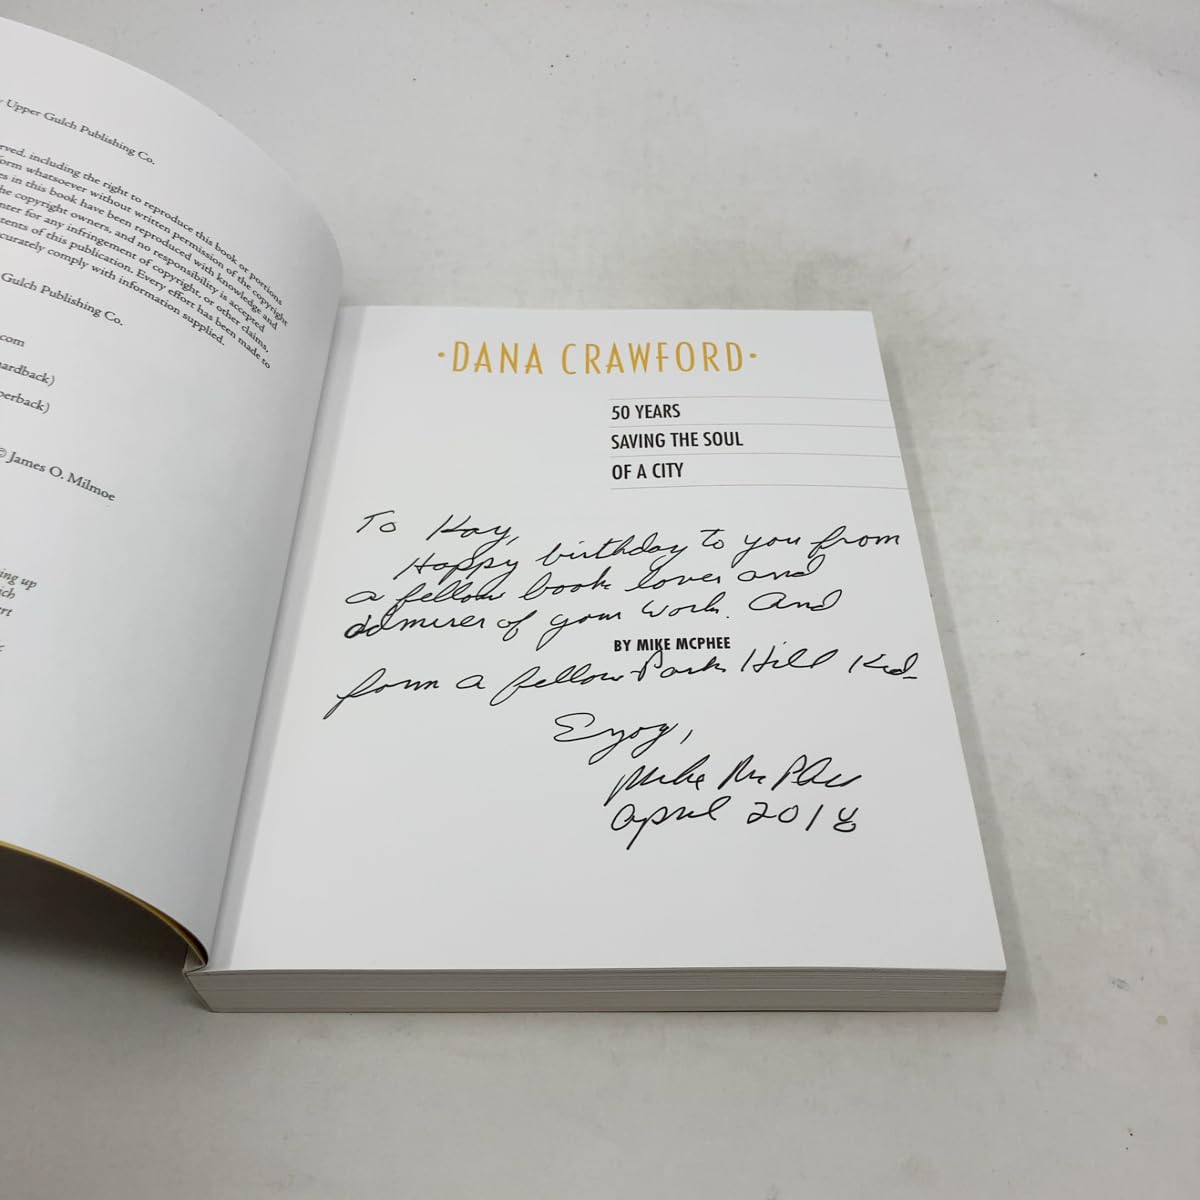 y Upper Gulch Publishing Co.
rved, including the right to reproduce this book or portions
form whatsoever without written permission of the copyright
es in this book have been reproduced with knowledge and
he copyright owners, and no responsibility is accepted
nter for any infringement of copyright, or other claims,
tents of this publication. Every effort has been made to
curately comply with information supplied.
Gulch Publishing Co.
.com
hardback)
perback)
© James O. Milmoe
ing up
ich
ert
·DANA CRAWFORD·
50 YEARS
SAVING THE SOUL
OF A CITY
To Kay,
Happy birthday to you from
a fellow book lover and
admirer of your work. And
BY MIKE MCPHEE
from a fellow Park Hill Kid
Enjoy,
Mike McPhee
April 2018